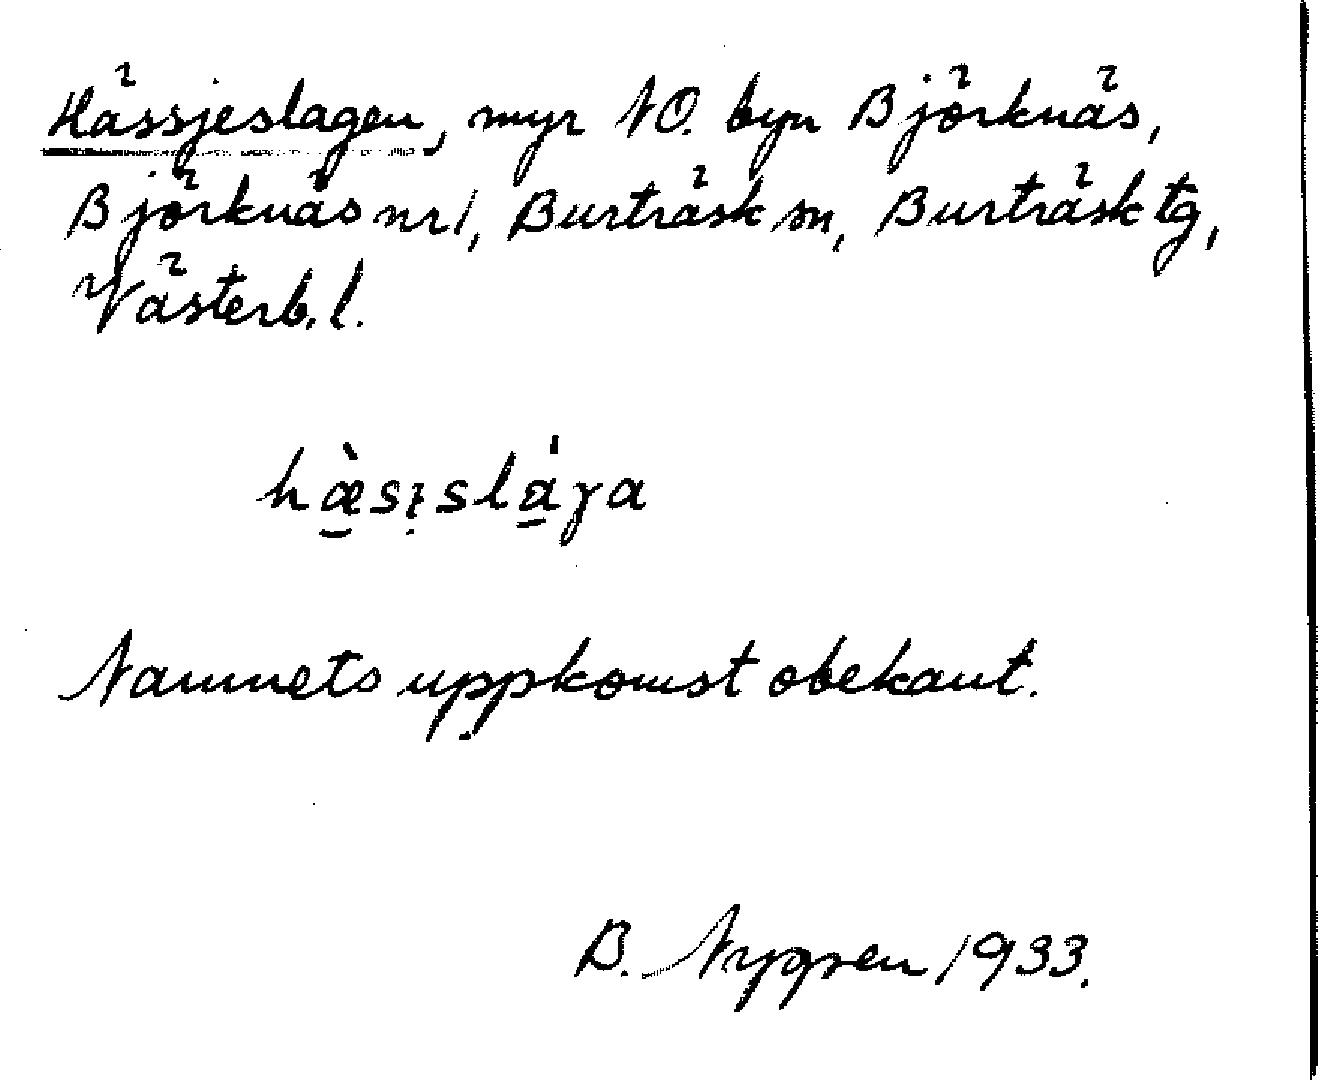 Hässjeslagen, myr NO. byn Björknäs,
Björknäs nr 1, Burträsk sn, Burträsk tg,
Västerb. l.
hæ̠̀sı̣sla̠̍ɣa
Namnets uppkomst obekant.
B. Nygren 1933.